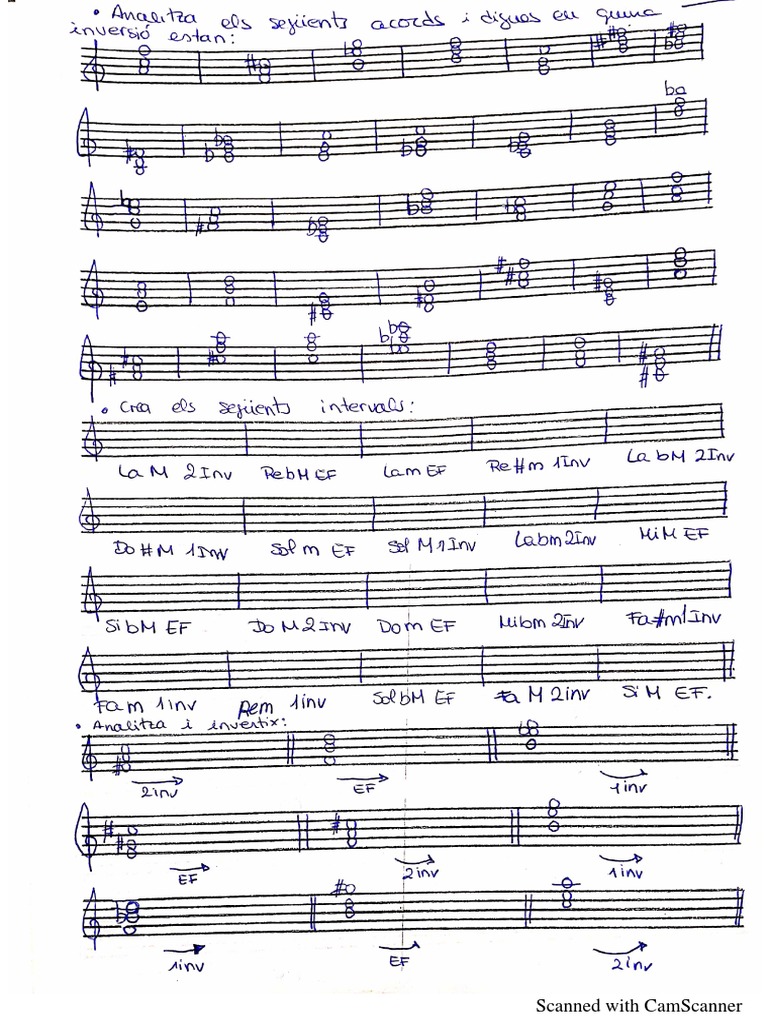 • Analitza els següents acords i digues en quina
inversió estan:
• Crea els següents intervals:
La M 2Inv Reb M EF Lam EF Re#m 1Inv La bM 2Inv
Do #M 1Inv Sol m EF Sol M 1Inv Labm 2Inv Mi M EF
Sib M EF Do M 2Inv Do m EF Mibm 2Inv Fa#m 1Inv
Fa m 1inv Rem 1inv Sol bM EF Fa M 2inv Si M EF.
• Analitza i invertix:
2inv EF 1inv
EF 2inv 1inv
1inv EF 2inv
Scanned with CamScanner